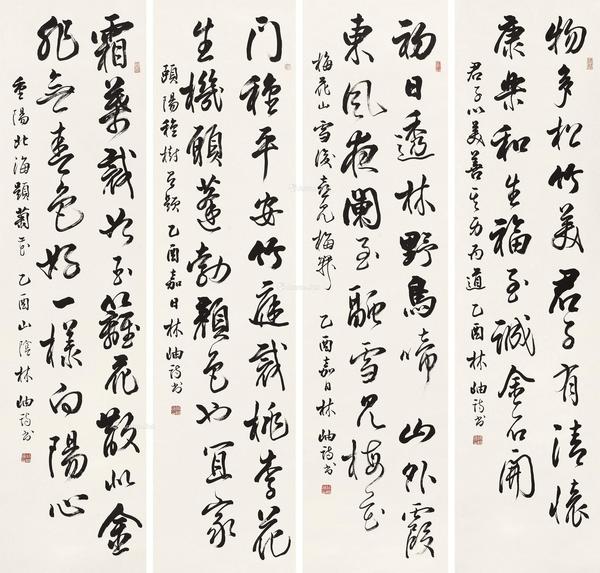 物多松竹美君子有清懷
康樂和生福至誠金石開
君子以美善道乙酉林岫詩書
初日透林野鳥啼山外霞
東風夜闌至融雪見梅花
梅花山雪後喜見梅乙酉嘉日林岫詩書
門種平安竹庭栽桃李花
生機頤蓬勃顏色也宜家
頤陽種樹題乙酉嘉日林岫詩書
霜葉籬花散似金
無春色好一樣向陽心
重陽北海題菊花乙酉山陰林岫詩書